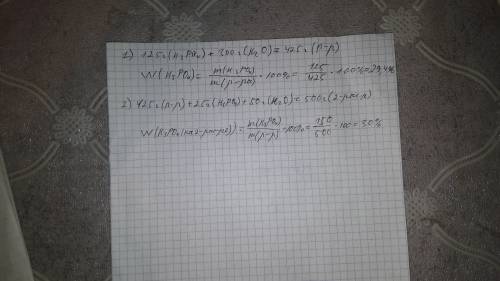 1) 125г(H₃PO₄) + 300г(H₂O) = 425г (р-р)
W(H₃PO₄) = m(H₃PO₄)/m(р-ра) · 100% = 125/425 · 100% = 29,4%
2) 425г (р-р) + 25г(H₃PO₄) + 50г(H₂O) = 500г (2-р-р)
W(H₃PO₄) = m(H₃PO₄)/m(р-р) · 100% = 150/500 · 100 = 30%